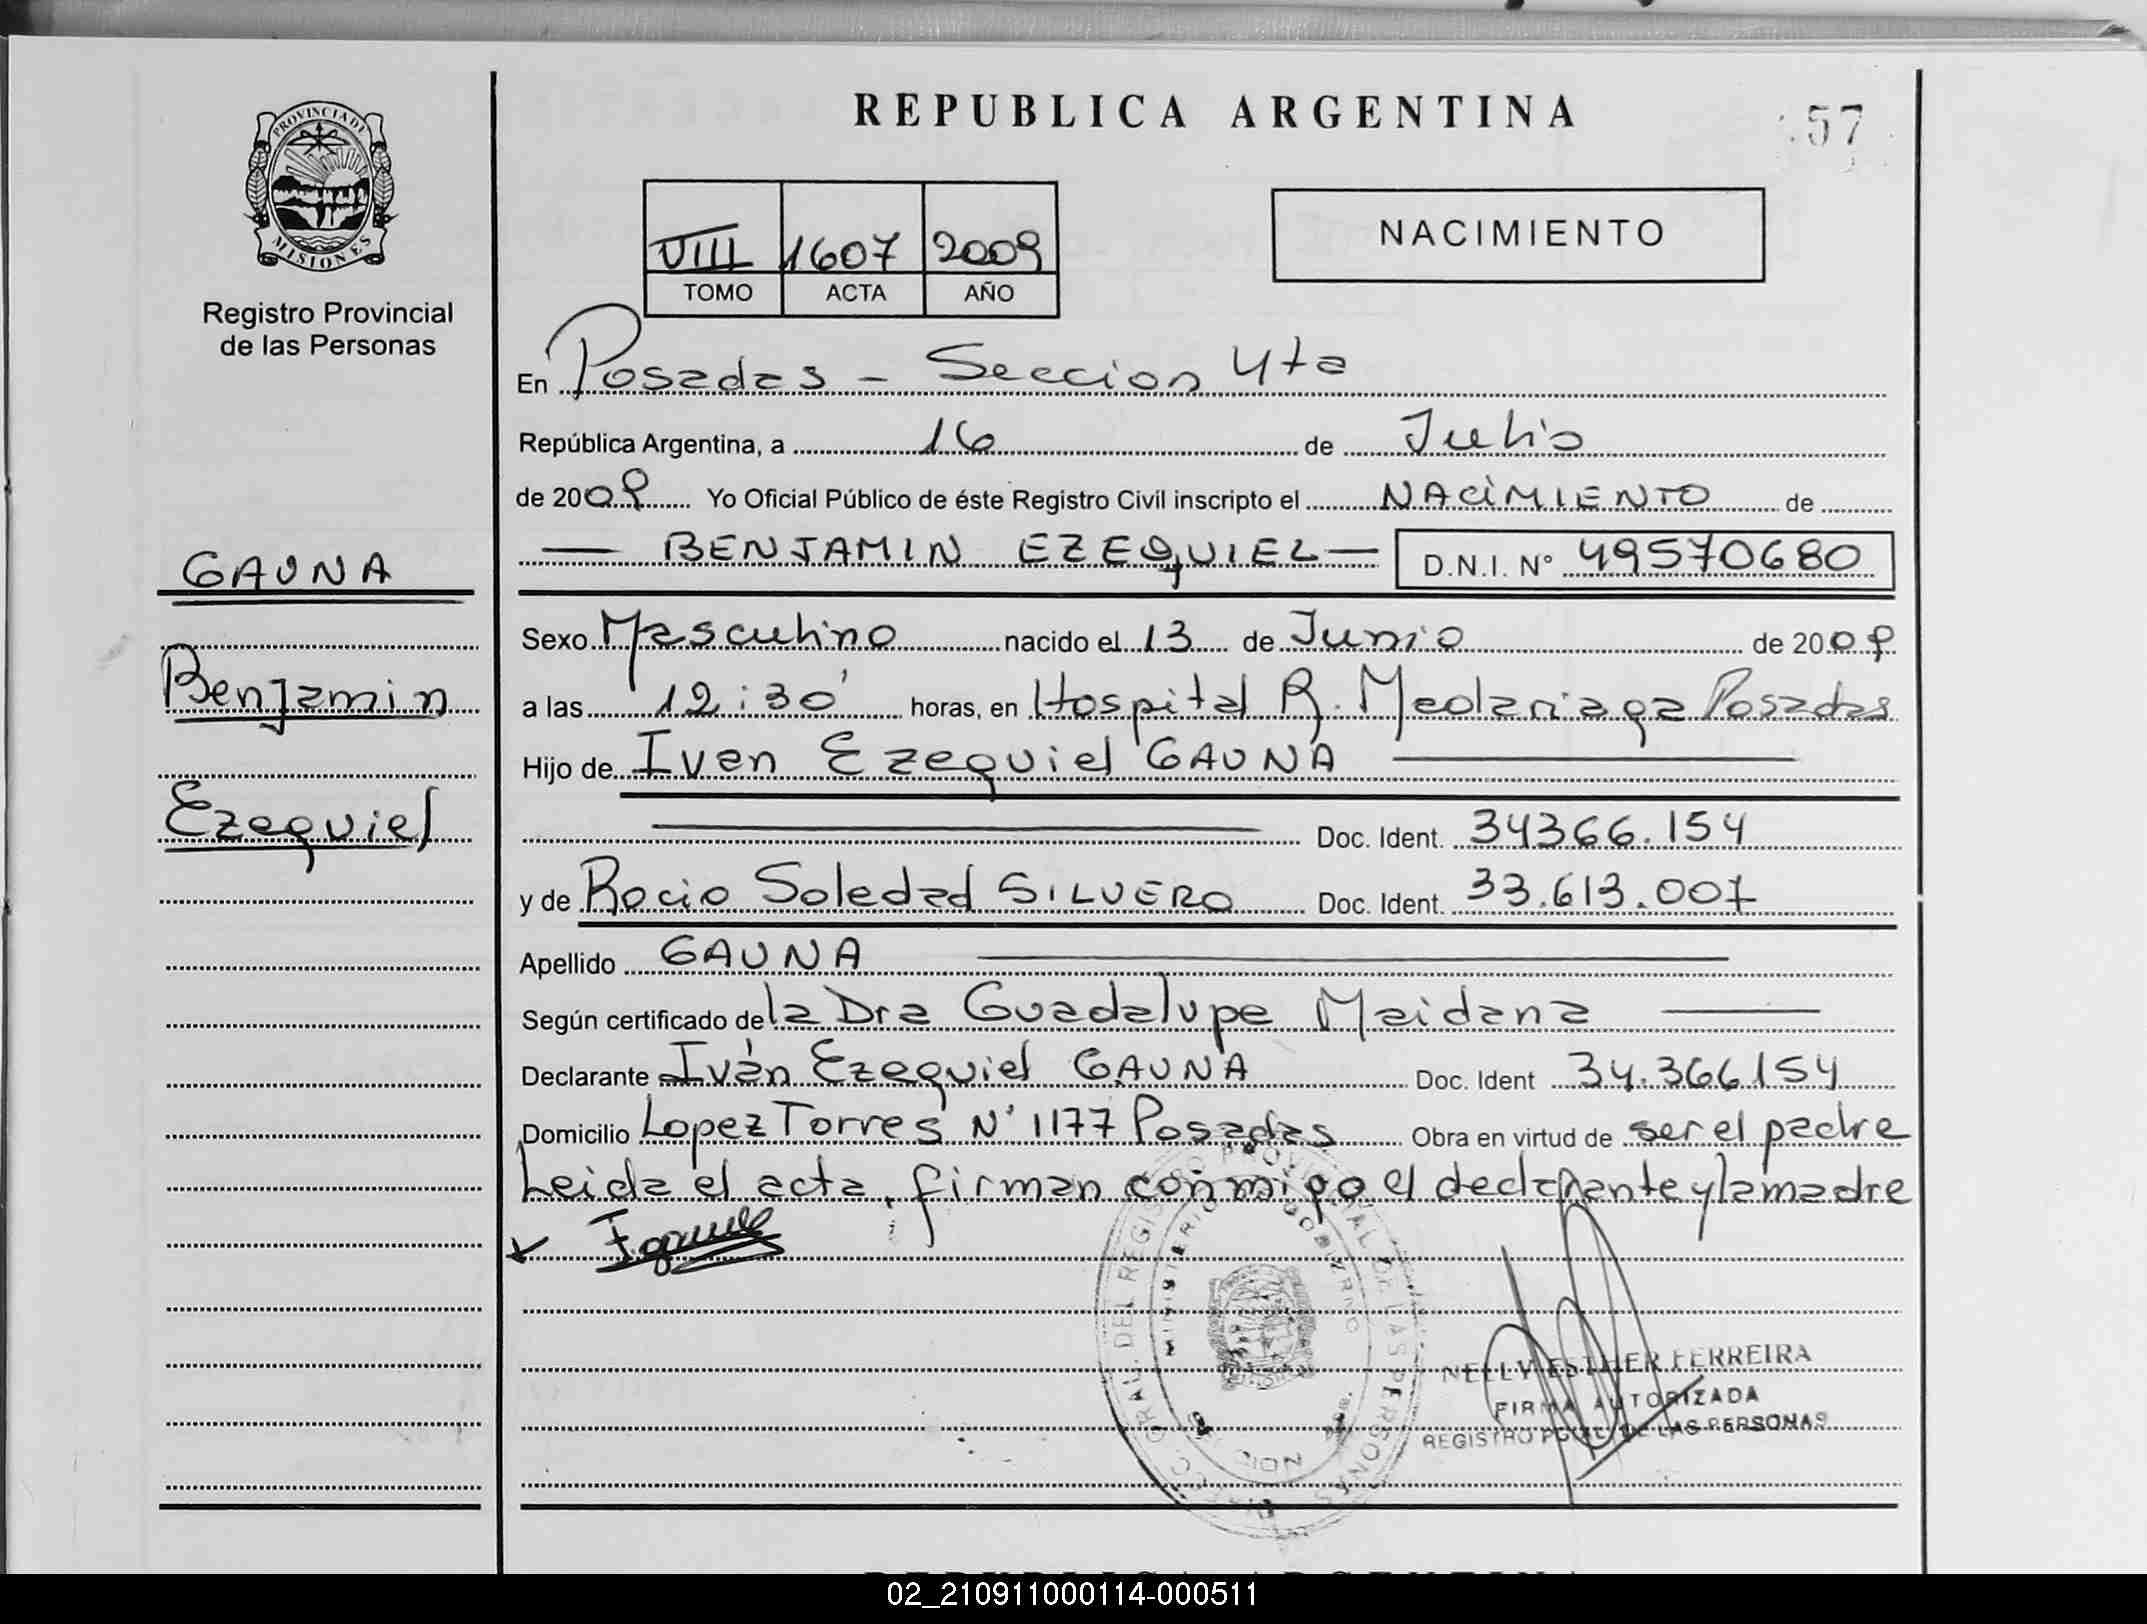 REPUBLICA ARGENTINA
57
PROVINCIA DE
MISIONES
Registro Provincial
de las Personas
VIII 1607 2009
TOMO ACTA AÑO
NACIMIENTO
En Posadas - Seccion 4ta
República Argentina, a 16 de Julio
de 2009 Yo Oficial Público de éste Registro Civil inscripto el NACIMIENTO de
BENJAMIN EZEQUIEL D.N.I. N° 49570680
GAUNA
Benjamin
Ezequiel
Sexo Masculino nacido el 13 de Junio de 2009
a las 12:30' horas, en Hospital R. Madariaga Posadas
Hijo de Ivan Ezequiel GAUNA
Doc. Ident. 34366.154
y de Rocio Soledad SILVERO Doc. Ident. 33.613.007
Apellido GAUNA
Según certificado de la Dra Guadalupe Maidana
Declarante Iván Ezequiel GAUNA Doc. Ident 34.366154
Domicilio Lopez Torres N° 1177 Posadas Obra en virtud de ser el padre
Leida el acta, firman conmigo el declarante y la madre
DIRECC. GRAL. DEL REGISTRO PROVINCIAL DE LAS PERSONAS
MINISTERIO GOBIERNO
NELLY ESTHER FERREIRA
FIRMA AUTORIZADA
REGISTRO PCIAL DE LAS PERSONAS
REPUBLICA ARGENTINA
02_210911000114-000511